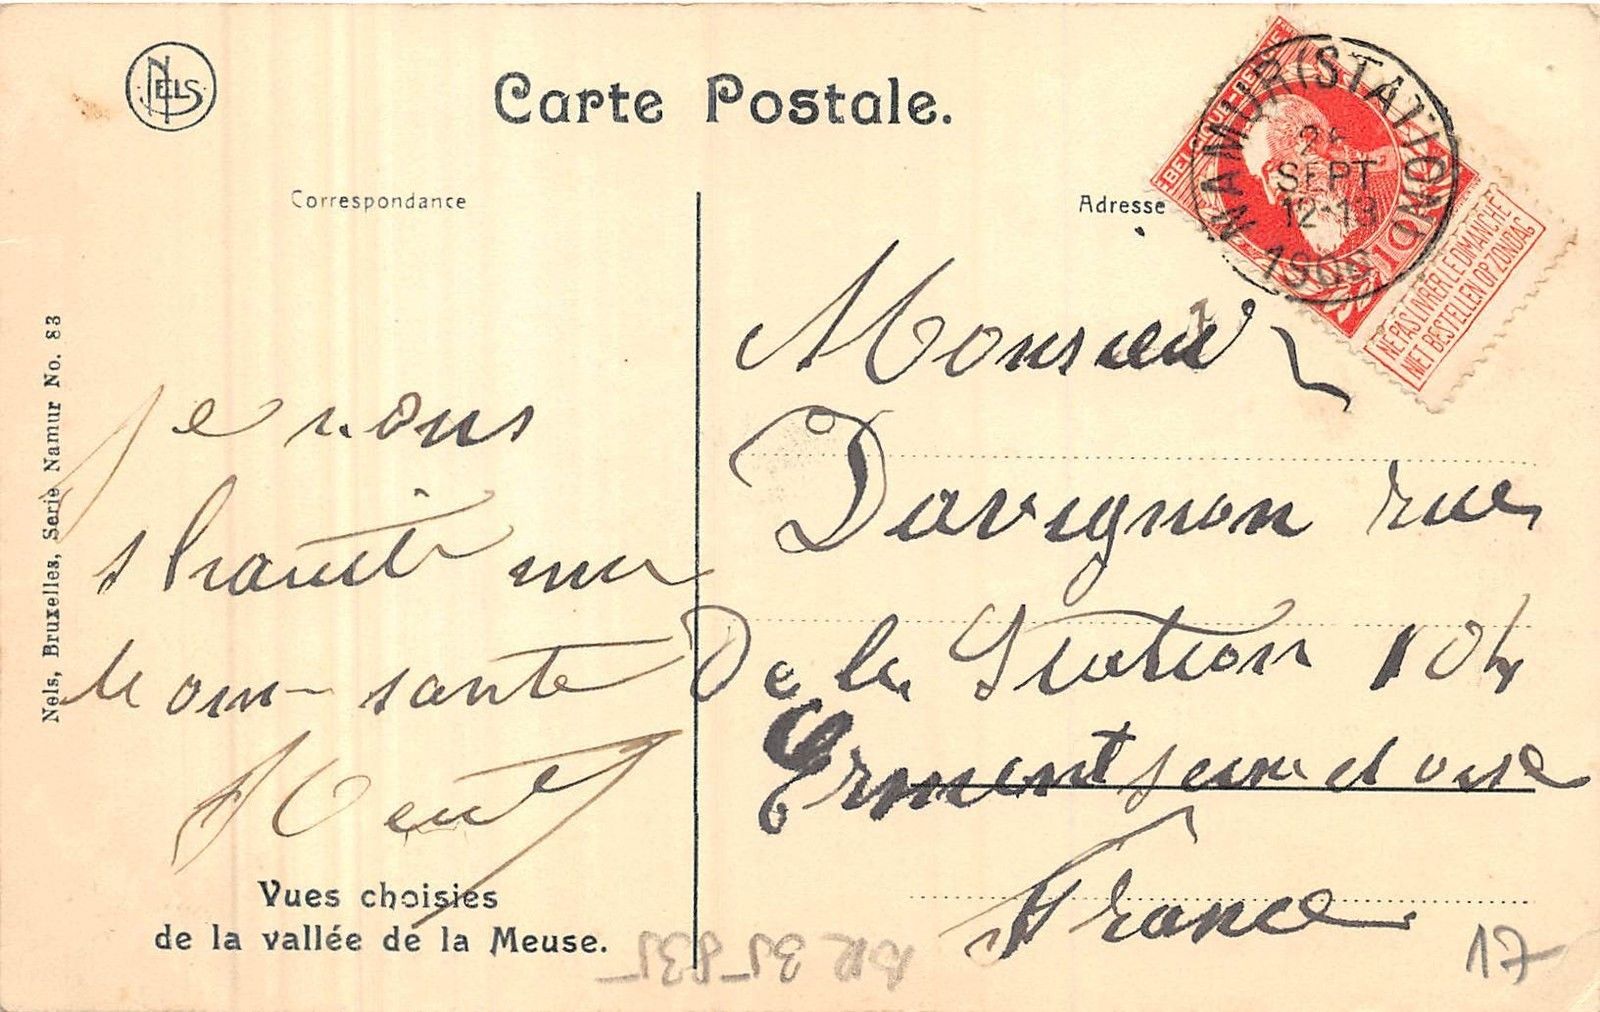 NELS
Carte Postale.
Correspondance
Adresse
BELGIQUE-BELGIË
NAMUR (STATION)
SEPT
12-13
10
NE PAS LIVRER LE DIMANCHE
NIET BESTELLEN OP ZONDAG
Nels, Bruxelles, Serie Namur No. 83
Je vous
shauite
bonn santé
Monsieur
Davignon rue
De la Station 104
Erment seine et oise
France
Vues choisies
de la vallée de la Meuse.
BR 35-835
17